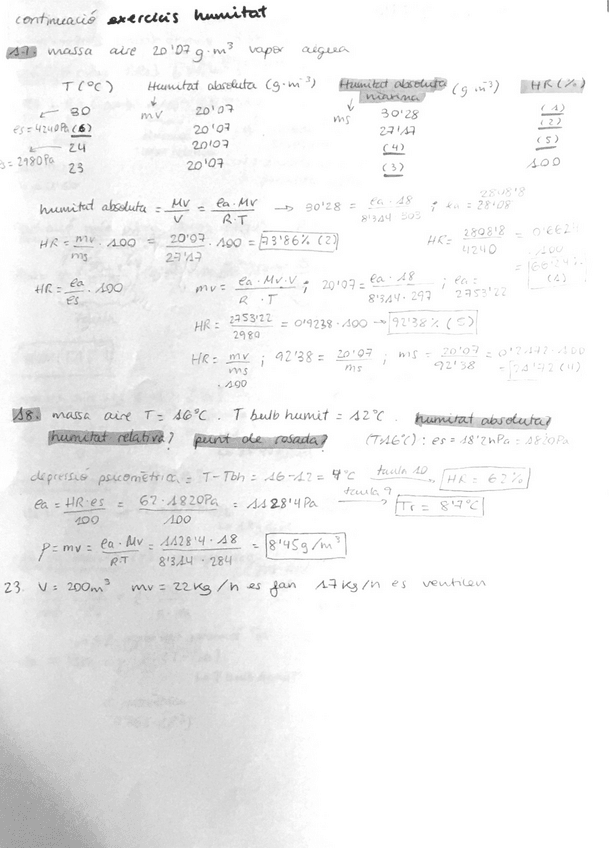 continuació exercicis humitat
17. massa aire 20'07 g·m³ vapor aigua
T(°C) Humitat absoluta (g·m⁻³) Humitat absoluta màxima (g·m⁻³) HR(%)
30 mv 20'07 ms 30'28 (1)
es=4240Pa (6) 20'07 27'17 (2)
24 20'07 (4) (5)
2980Pa 23 20'07 (3) 100
humitat absoluta = Mv/V = ea·Mv/R·T → 30'28 = ea·18/8'314·303 ; ea = 2808'8
HR = mv/ms · 100 = 20'07/27'17 · 100 = 73'86% (2) HR = 2808'8/4240 = 0'6624 · 100 = 66'24% (1)
HR = ea/es · 100 mv = ea·Mv·V/R·T ; 20'07 = ea·18/8'314·297 ; ea = 2753'22
HR = 2753'22/2980 = 0'9238·100 → 92'38% (5)
HR = mv/ms · 100 ; 92'38 = 20'07/ms ; ms = 20'07/92'38 = 0'2172·100 = 21'72 (4)
18. massa aire T=16°C. T bulb humit = 12°C. humitat absoluta?
humitat relativa? punt de rosada? (T16°C): es = 18'2hPa = 1820Pa
depressió psicomètrica = T-Tbh = 16-12 = 4°C taula 10 HR = 62%
ea = HR·es/100 = 62·1820Pa/100 = 1128'4Pa taula 9 Tr = 8'7°C
ρ = mv = ea·Mv/R·T = 1128'4·18/8'314·284 = 8'45g/m³
23. V = 200m³ mv = 22Kg/h es fan 17Kg/h es ventilen